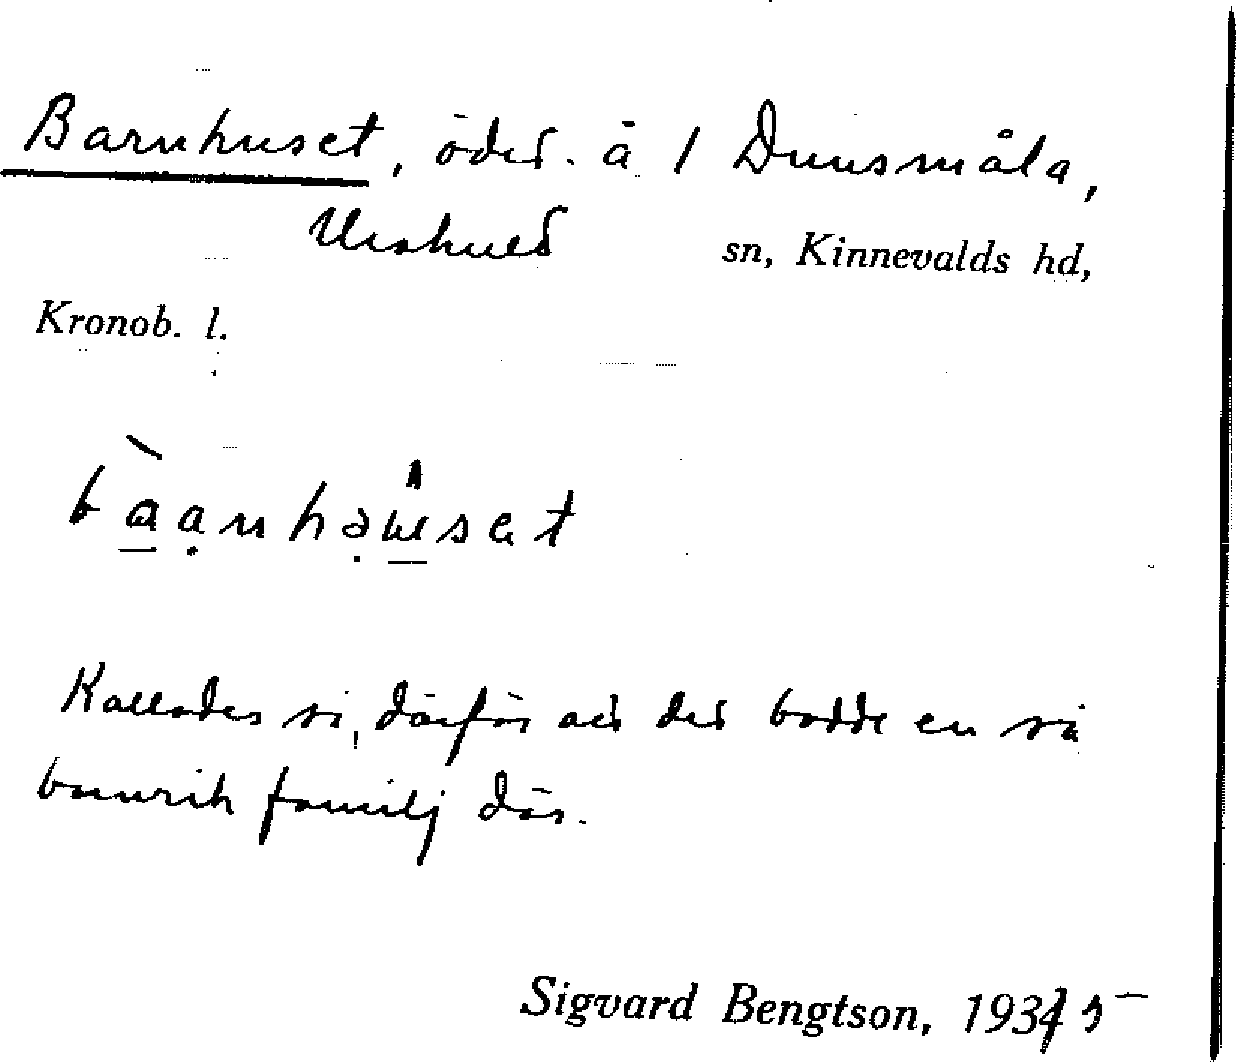 Barnhuset, ödet. å 1 Dunsmåla,
Urshult sn, Kinnevalds hd,
Kronob. l.
Kallades så, därför att det bodde en så
barnrik familj där.
Sigvard Bengtson, 1935